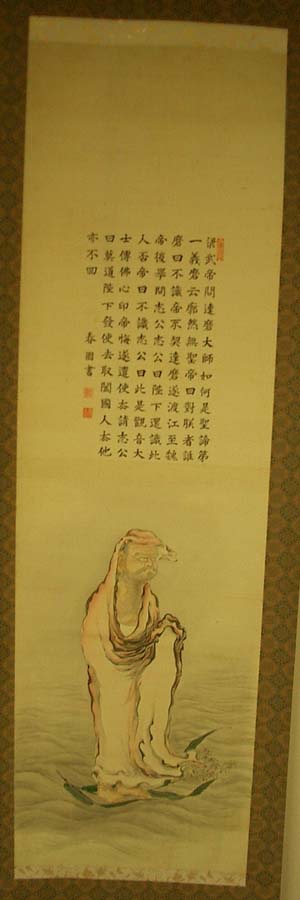 梁武帝問達磨大師如何是聖諦第
一義磨云廓然無聖帝曰對朕者誰
磨曰不識帝不契達磨遂渡江至魏
帝後舉問志公志公曰陛下還識此
人否帝曰不識志公曰此是觀音大
士傳佛心印帝悔遂遣使去請志公
曰莫道陛下發使去取闔國人去他
亦不回
春書